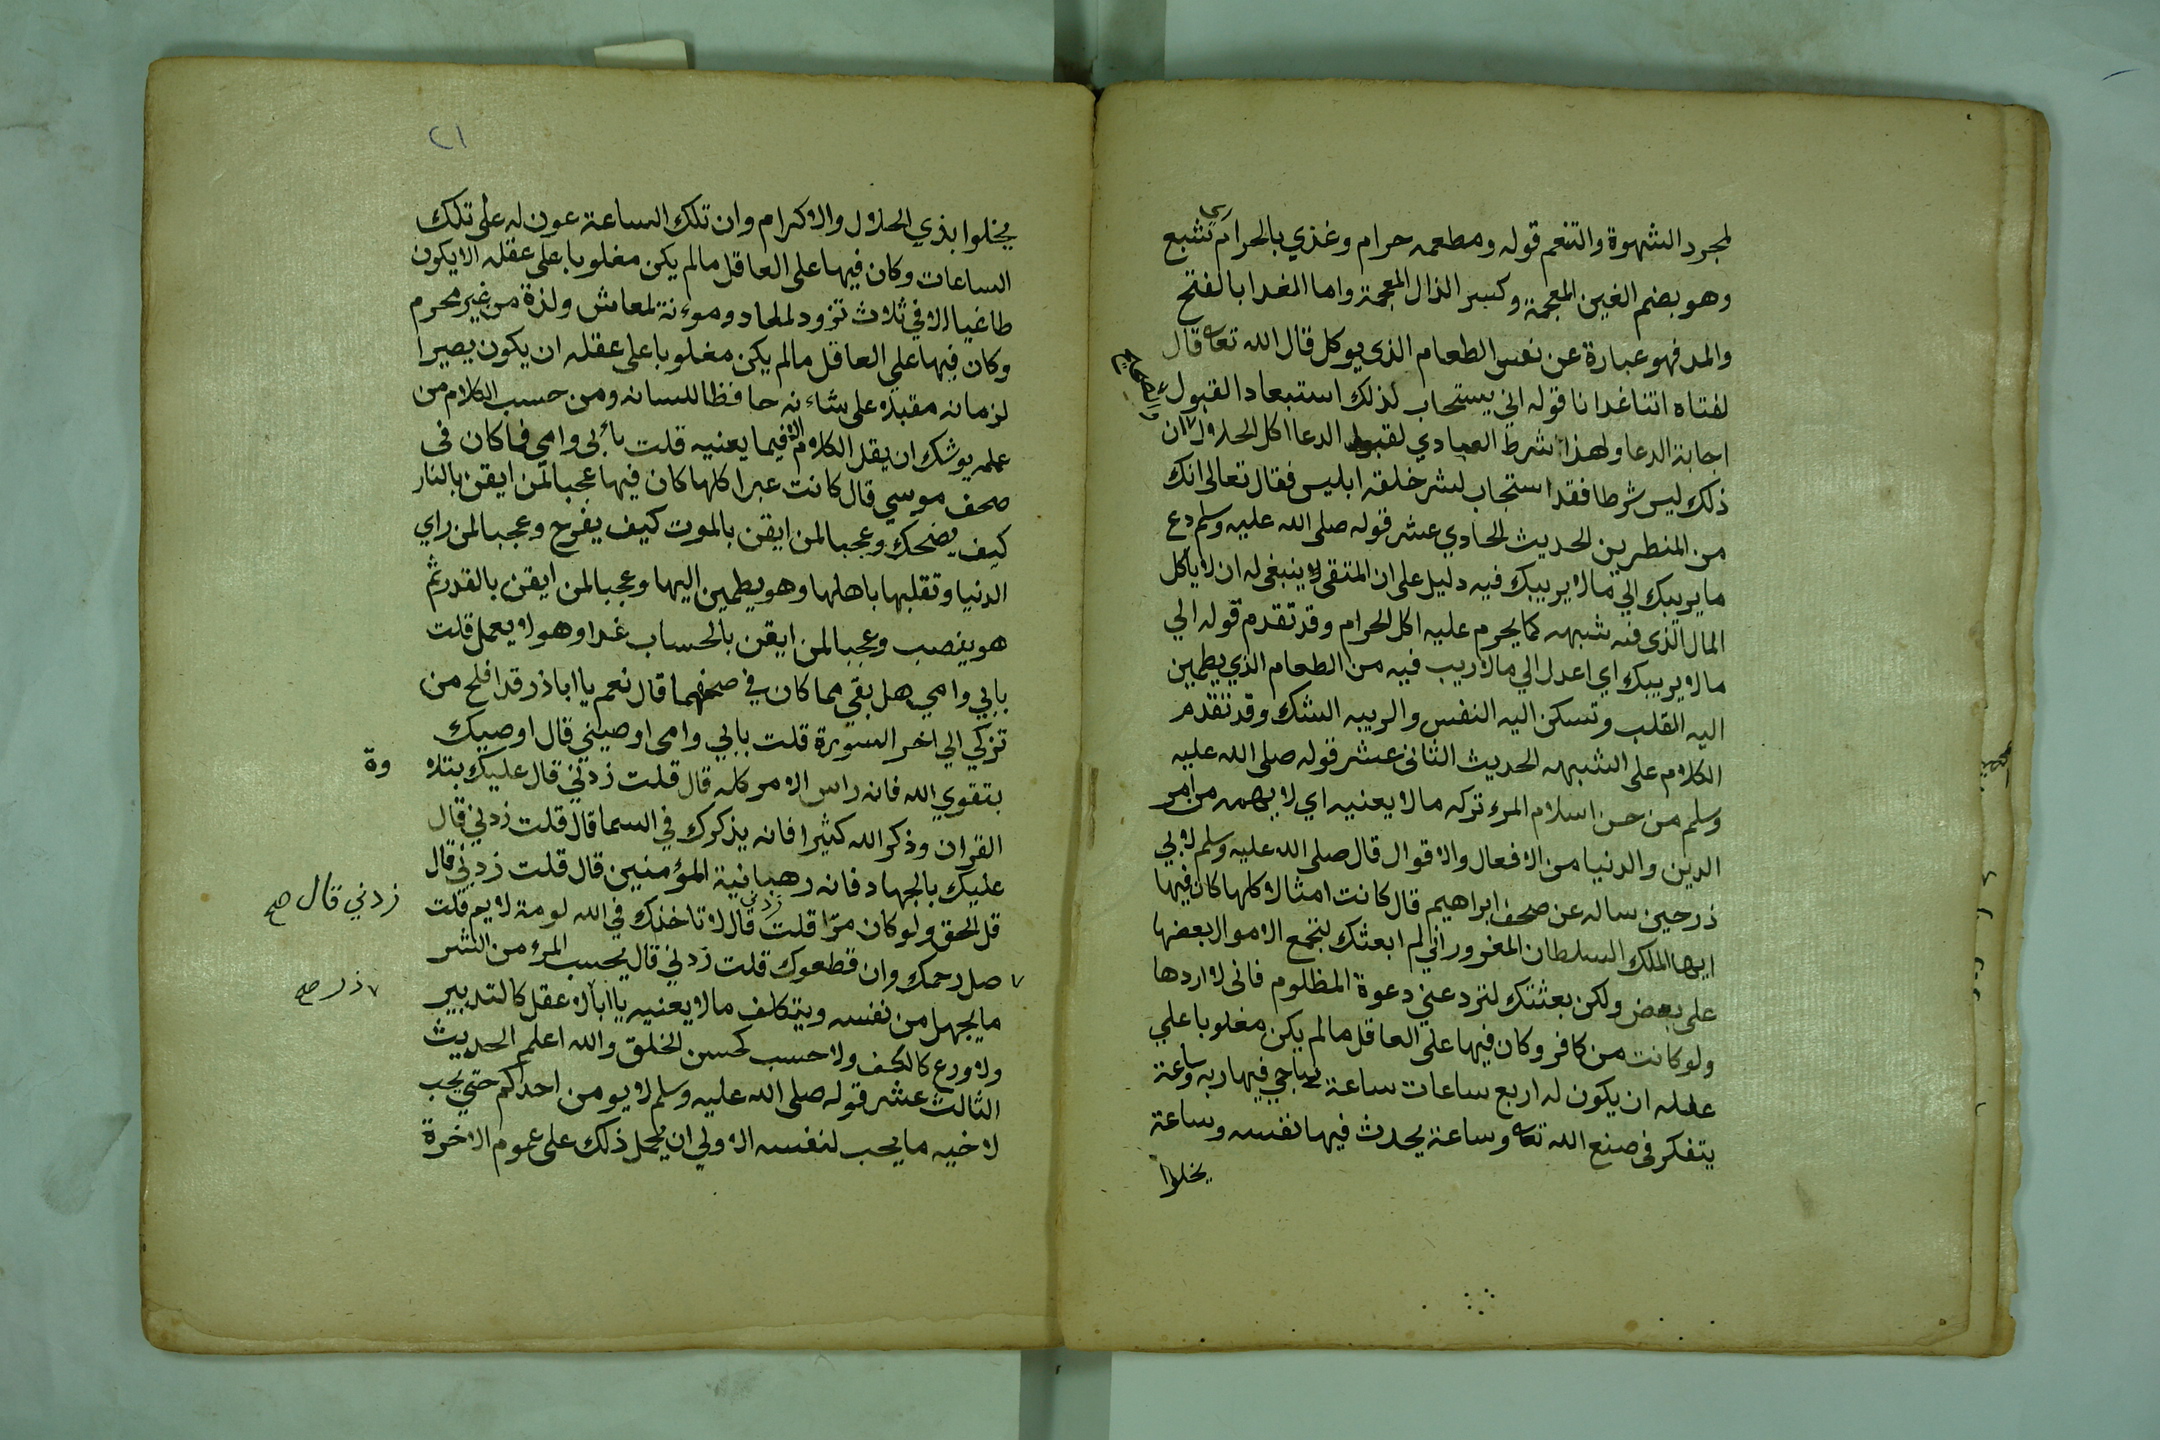 لمجرد الشهوة والتنعم قوله ومطعمه حرام وغذي بالحرام اي شبع
وهو بضم الغين المعجمة وكسر الذال المعجمة واما الغدا بالفتح
والمد فهو عبارة عن نفس الطعام الذي يوكل قال الله تعالى قال
لفتاه اتنا غدانا قوله اني يستجاب لذلك استبعادا لقبول
اجابة الدعا ولهذا شرط العبادي لقبول الدعا اكل الحلال ان
ذلك ليس شرطا فقد استجاب لشر خلقه ابليس فقال تعالى انك
من المنظرين الحديث الحادي عشر قوله صلى الله عليه وسلم دع
ما يريبك الي مالا يريبك فيه دليل على ان المتقى لا ينبغى له ان لا ياكل
المال الذى فيه شبهه كما يحرم عليه اكل الحرام وقد تقدم قوله الي
مالا يريبك اي اعدل الي مالا ريب فيه من الطعام الذي يطمين
اليه القلب وتسكن اليه النفس والريبه الشك وقد تقدم
الكلام على الشبهه الحديث الثانى عشر قوله صلى الله عليه
وسلم من حسن اسلام المرء تركه مالا يعنيه اي لا يهمه من امر
الدين والدنيا من الافعال والاقوال قال صلى الله عليه وسلم لابي
ذر حين ساله عن صحف ابراهيم قال كانت امثالا كلها كان فيها
ايها الملك السلطان المغرور اني لم ابعثك لتجمع الاموال بعضها
على بعض ولكن بعثتك لترد عني دعوة المظلوم فانى لا اردها
ولو كانت من كافر وكان فيها على العاقل مالم يكن مغلوبا علي
عقله ان يكون له اربع ساعات ساعة يناجي فيها ربه وساعة
يتفكر فى صنع الله تعالى وساعة يحدث فيها نفسه وساعة
يخلوا
٢١
يخلوا بذي الجلال والاكرام وان تلك الساعة عون له على تلك
الساعات وكان فيها على العاقل مالم يكن مغلوبا على عقله الا يكون
طاغيا الا في ثلاث تزود لمعاد وموءنة لمعاش ولذة من غير محرم
وكان فيها علي العاقل مالم يكن مغلوبا على عقله ان يكون بصيرا
لزمانه مقبلا على شاءنه حافظا للسانه ومن حسب الكلام من
عمله يوشك ان يقل الكلام الا فيما يعنيه قلت بأبى وامي فما كان فى
صحف موسي قال كانت عبرا كلها كان فيها عجبا لمن ايقن بالنار
كيف يضحك وعجبا لمن ايقن بالموت كيف يفرح وعجبا لمن راي
الدنيا وتقلبها باهلها وهو يطمين اليها وعجبا لمن ايقن بالقدر ثم
هو يغصب وعجبا لمن ايقن بالحساب غدا وهو لا يعمل قلت
بابي وامي هل بقي مما كان في صحفهما قال نعم يا اباذر قد افلح من
تزكي الي اخر السورة قلت بابي وامى اوصيني قال اوصيك
بتقوي الله فانه راس الامر كله قال قلت زدني قال عليك بتلا
وة
القران وذكر الله كثيرا فانه يذكرك في السما قال قلت زدني قال
عليك بالجهاد فانه رهبانية المؤمنين قال قلت زدني قال
زدني قال صح
قل الحق ولو كان مرّا قلت زدني قال لا تاخذك في الله لومة لايم قلت
صل رحمك وان قطعوك قلت زدني قال يحسب المرء من الشر
ما يجهل من نفسه ويتكلف مالا يعنيه يا ابا لا عقل كالتدبير
ذر صح
ولا ورع كالكف ولا حسب كحسن الخلق والله اعلم الحديث
الثالث عشر قوله صلى الله عليه وسلم لا يومن احدكم حتي يحب
لاخيه ما يحب لنفسه الاولي ان يحمل ذلك على عموم الاخرة